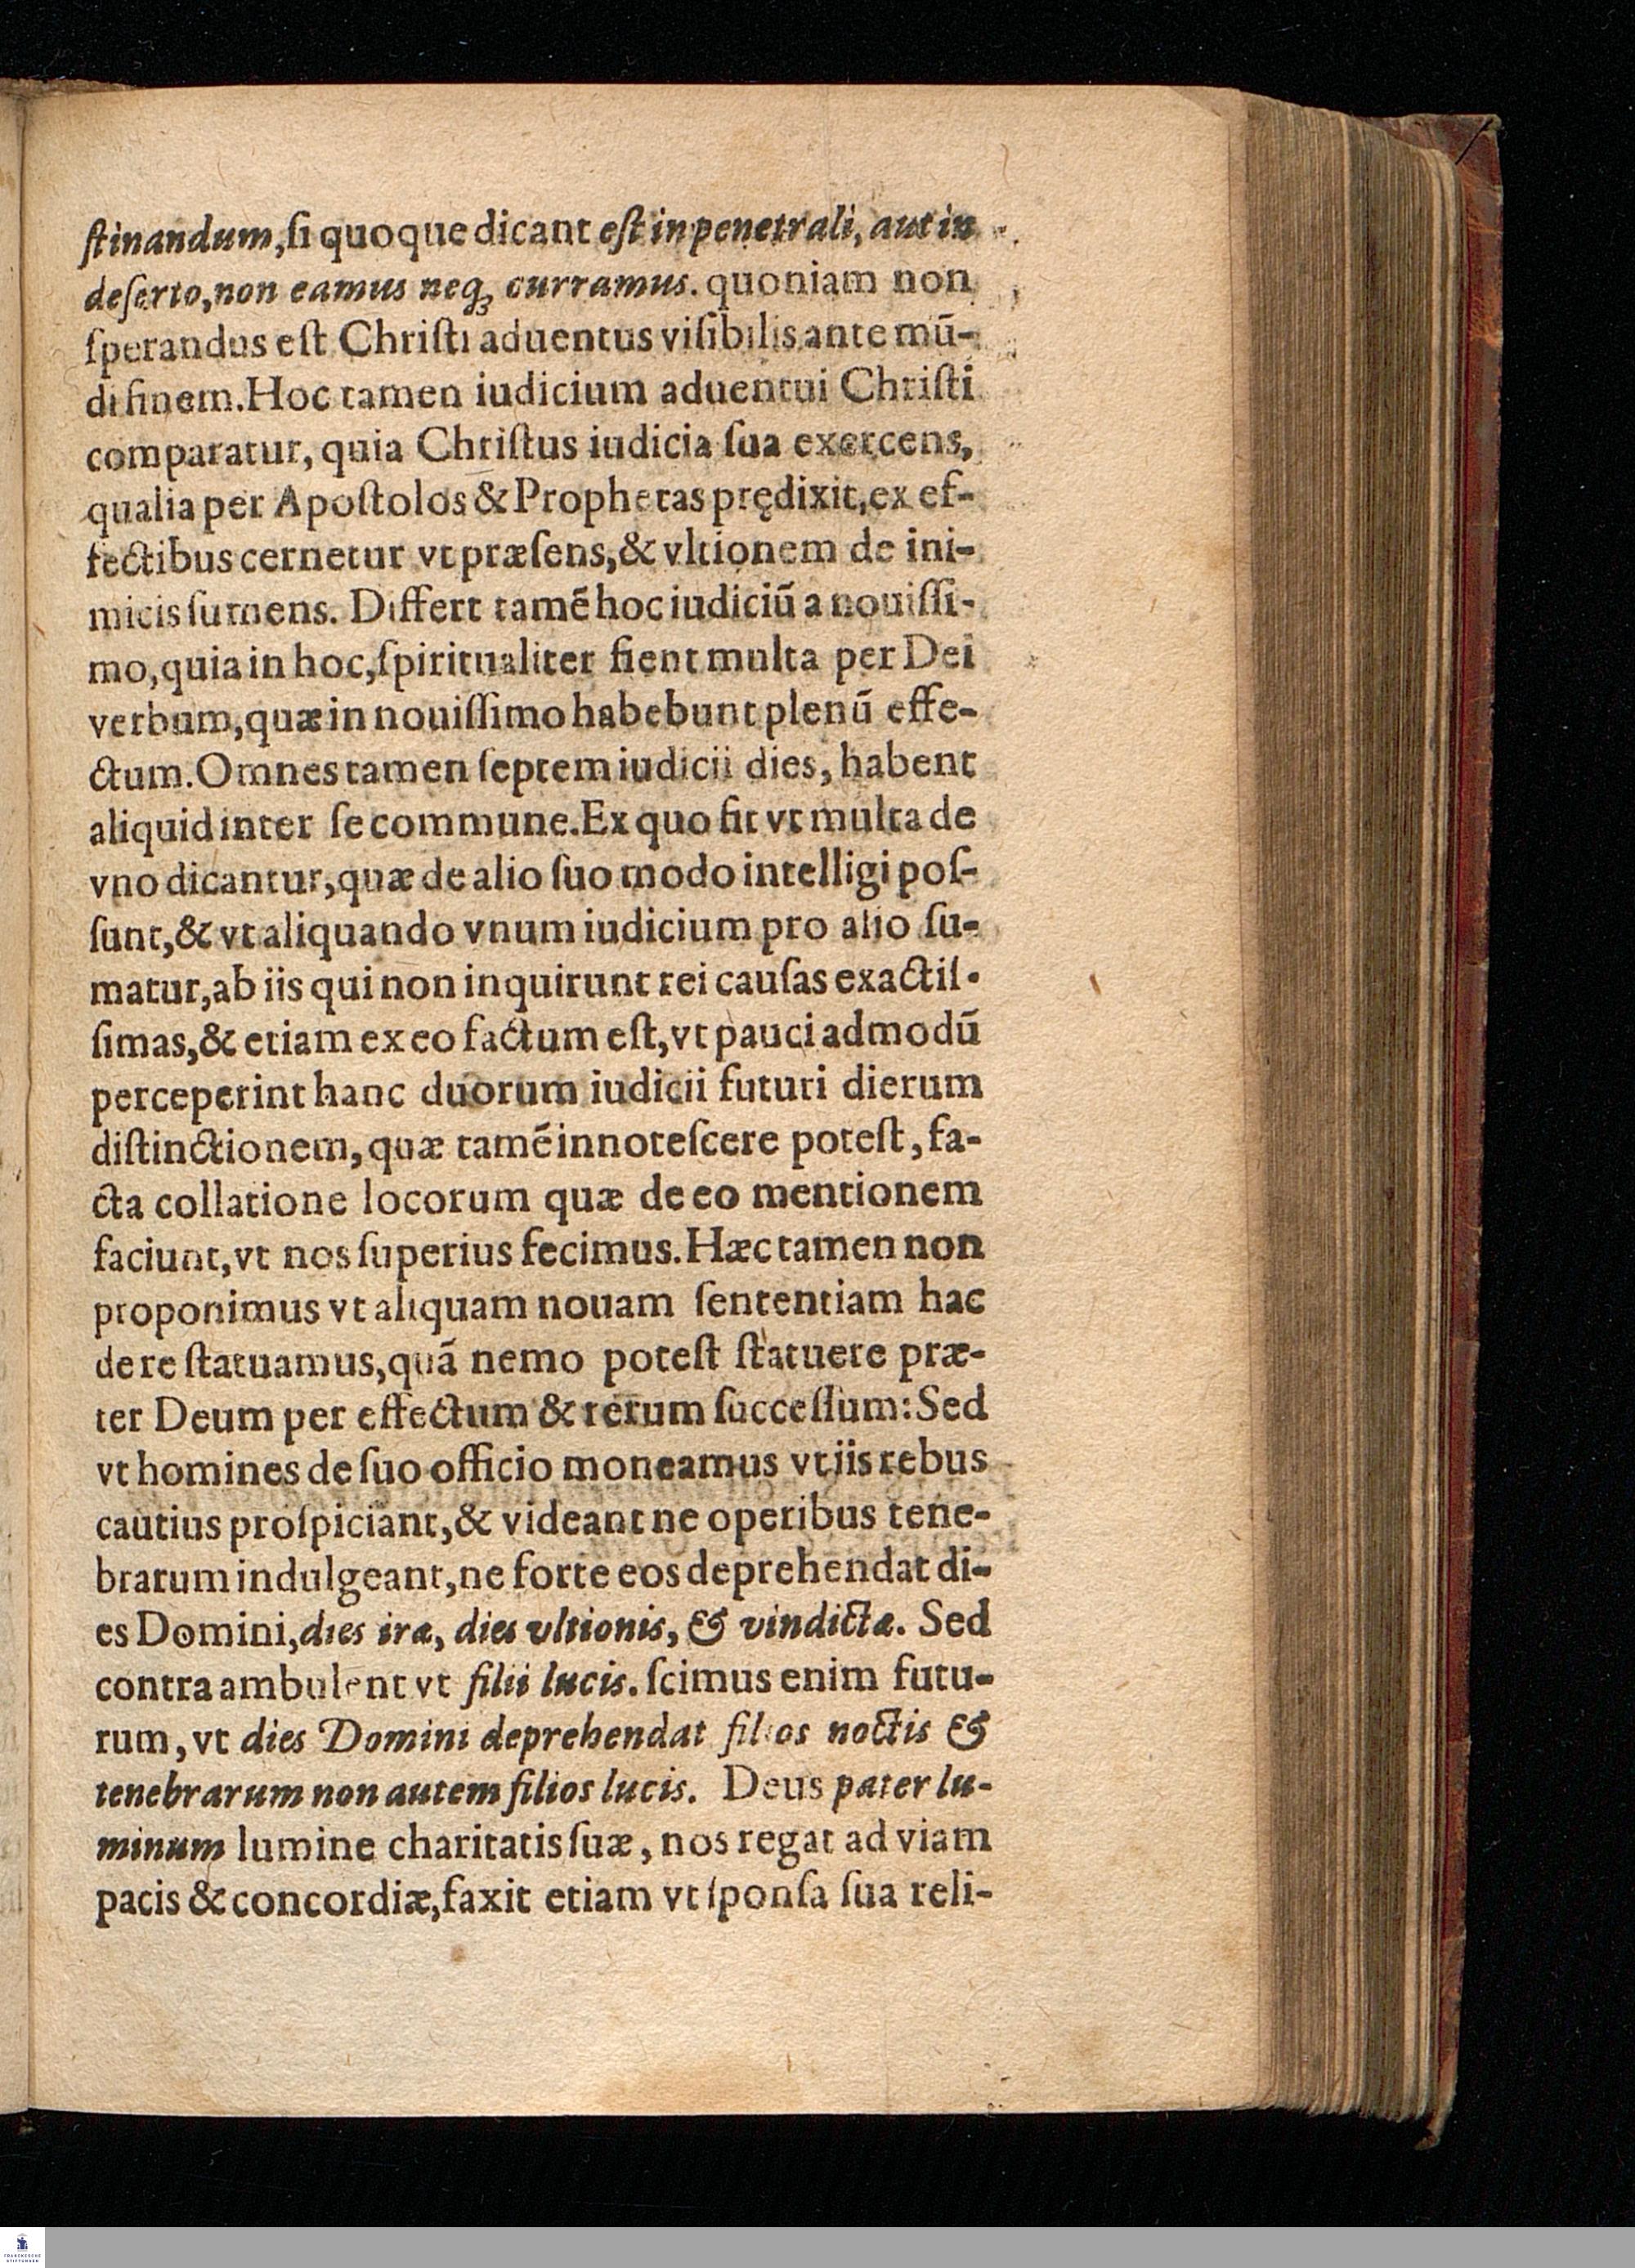 ſtinandum, ſi quoque dicant eſt in penetrali, aut in
deſerto, non eamus neqꝫ curramus. quoniam non
ſperandus eſt Chriſti aduentus viſibilis ante mū-
di finem. Hoc tamen iudicium aduentui Chriſti
comparatur, quia Chriſtus iudicia ſua exercens,
qualia per Apoſtolos & Prophetas prędixit, ex ef-
fectibus cernetur vt præſens, & vltionem de ini-
micis ſumens. Differt tamē hoc iudiciū a nouiſſi-
mo, quia in hoc, ſpiritualiter fient multa per Dei
verbum, quæ in nouiſſimo habebunt plenū effe-
ctum. Omnes tamen ſeptem iudicii dies, habent
aliquid inter ſe commune. Ex quo fit vt multa de
vno dicantur, quæ de alio ſuo modo intelligi poſ-
ſunt, & vt aliquando vnum iudicium pro alio ſu-
matur, ab iis qui non inquirunt rei cauſas exactiſ-
ſimas, & etiam ex eo factum eſt, vt pauci admodū
perceperint hanc duorum iudicii futuri dierum
diſtinctionem, quæ tamē innoteſcere poteſt, fa-
cta collatione locorum quæ de eo mentionem
faciunt, vt nos ſuperius fecimus. Hæc tamen non
proponimus vt aliquam nouam ſententiam hac
de re ſtatuamus, quā nemo poteſt ſtatuere præ-
ter Deum per effectum & rerum ſucceſſum: Sed
vt homines de ſuo officio moneamus vt iis rebus
cautius proſpiciant, & videant ne operibus tene-
brarum indulgeant, ne forte eos deprehendat di-
es Domini, dies iræ, dies vltionis, & vindictæ. Sed
contra ambulent vt filii lucis. ſcimus enim futu-
rum, vt dies Domini deprehendat filios noctis &
tenebrarum non autem filios lucis. Deus pater lu-
minum lumine charitatis ſuæ, nos regat ad viam
pacis & concordiæ, faxit etiam vt ſponſa ſua reli-
FRANCKESCHE
STIFTUNGEN